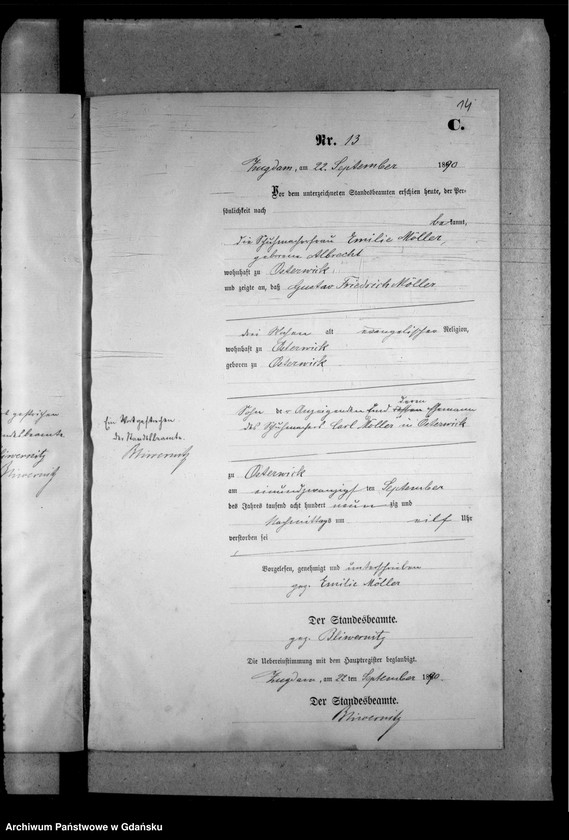 14
C.
Nr. 13
Zugdam, am 22. September 1890
Vor dem unterzeichneten Standesbeamten erschien heute, der Per-
sönlichkeit nach
bekannt,
die Schuhmacherfrau Emilie Möller,
geborene Albrecht
wohnhaft zu Osterwick
und zeigte an, daß Gustav Friedrich Möller
drei Wochen alt evangelischer Religion,
wohnhaft zu Osterwick
geboren zu Osterwick
deren
Sohn der Anzeigenden und dessen Ehemann
des Schuhmachers Carl Möller in Osterwick
zu Osterwick
am einundzwanzigsten September
des Jahres tausend acht hundert neunzig und
Nachmittags um eilf Uhr
verstorben sei
Vorgelesen, genehmigt und unterschrieben
gez. Emilie Möller
Der Standesbeamte.
gez. Bliwernitz
Die Uebereinstimmung mit dem Hauptregister beglaubigt.
Zugdam, am 22 ten September 1890.
Der Standesbeamte.
Bliwernitz
Ein Wort gestrichen
der Standesbeamte.
Bliwernitz
gestrichen
Archiwum Państwowe w Gdańsku